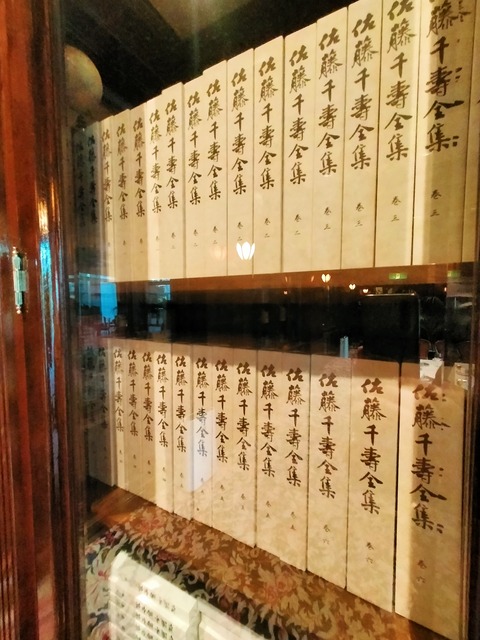 佐藤千壽全集
佐藤千壽全集
佐藤千壽全集
佐藤千壽全集
佐藤千壽全集
佐藤千壽全集
佐藤千壽全集
佐藤千壽全集 卷二
佐藤千壽全集 卷二
佐藤千壽全集 卷三
佐藤千壽全集 卷三
佐藤千壽全集 卷三
佐藤千壽全集 卷三
佐藤千壽全集
佐藤千壽全集
佐藤千壽全集
佐藤千壽全集
佐藤千壽全集
佐藤千壽全集
佐藤千壽全集
佐藤千壽全集
佐藤千壽全集 卷五
佐藤千壽全集 卷五
佐藤千壽全集 卷六
佐藤千壽全集 卷六
佐藤千壽全集 卷六